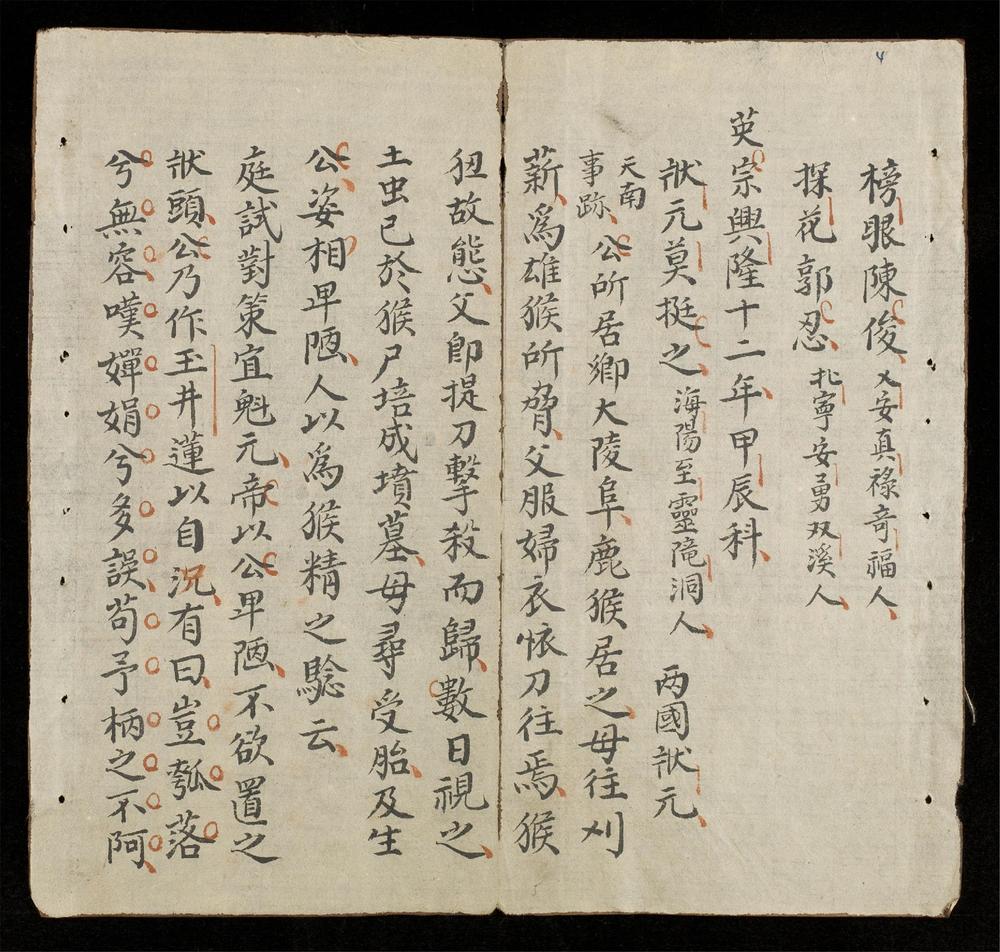 4
榜眼陳俊乂安真祿竒福人
探花郭忍北寧安勇双溪人
英宗興隆十二年甲辰科
狀元莫挺之海陽至靈隴洞人 两國狀元
天南事跡公所居鄉大陵阜鹿猴居之母往刈
薪爲雄猴所脅父服婦衣恠刀往焉猴
狃故態父卽提刀擊殺而歸數日視之
土虫已於猴尸培成墳墓母尋受胎及生
公姿相卑陋人以爲猴精之騐云
庭試對策宜魁元帝以公卑陋不欲置之
狀頭公乃作玉井蓮以自况有曰豈瓠落
兮無容嘆嬋娟兮多誤苟予柄之不阿